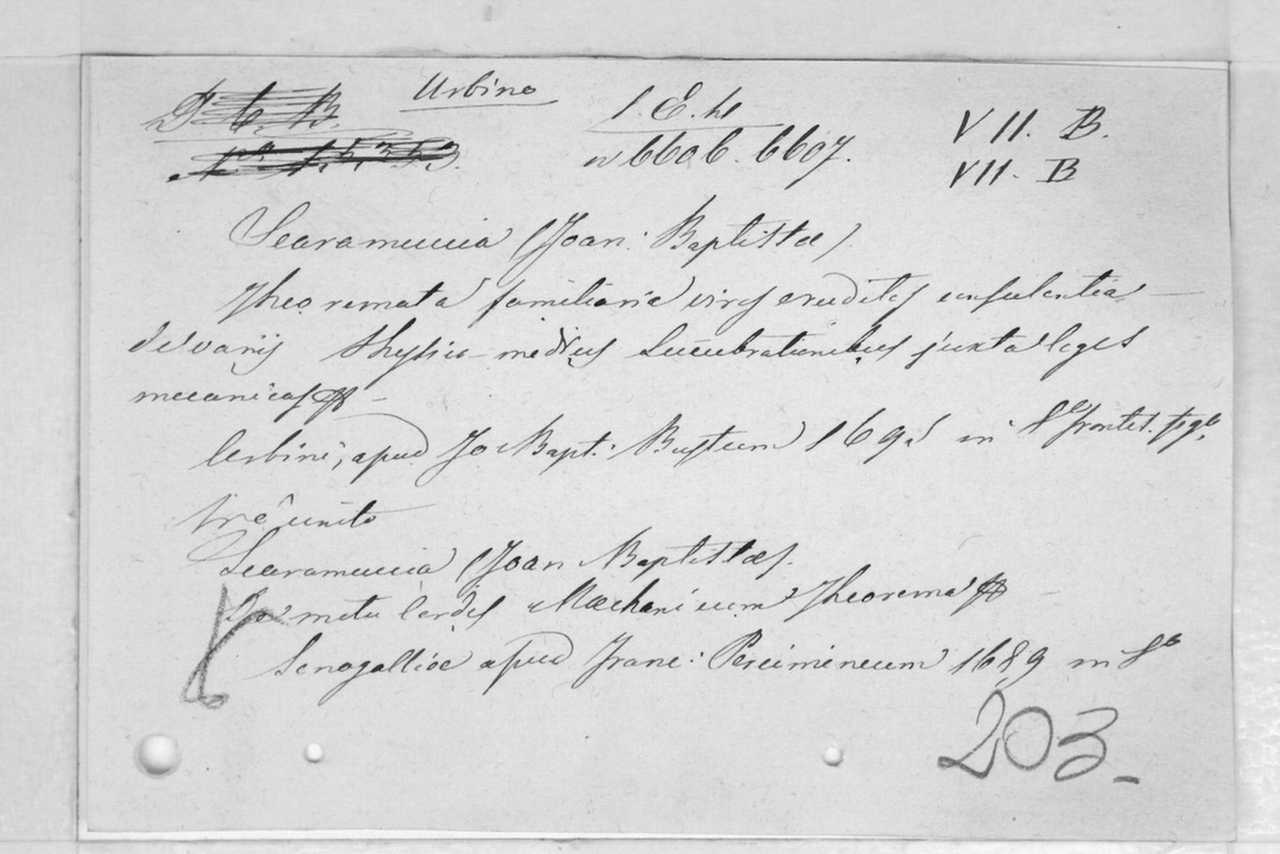 Urbino
D. C. B.
1. E. h
VII. B.
nº 15353.
n 6606. 6607.
VII. B
Scaramuccia (Joan: Baptistæ).
Theoremata familiaria viros eruditos consulentia
de varijs Physico-medicis Lucubrationibus juxta leges
mecanicas
Urbini, apud Jo Bapt: Bustum 1695 in 8º Frontis. fig.
Trê unito
Scaramuccia (Joan Baptistæ).
De motu Cordis Mechanicum Theorema
Senogalliæ apud Franc: Percimineum 1689 in 8º
203_